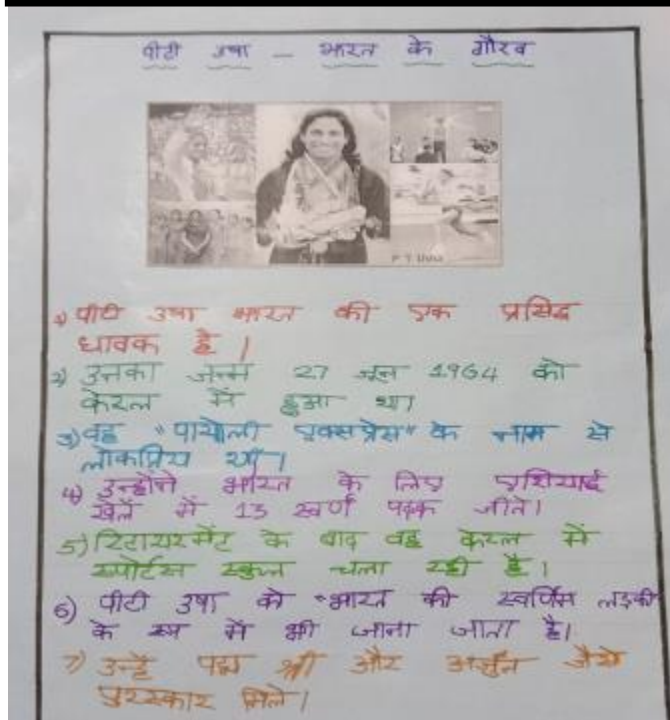 पीटी उषा – भारत के गौरव
P T Usha
1) पीटी उषा भारत की एक प्रसिद्ध
धावक है ।
2) उनका जन्म 27 जून 1964 को
केरल में हुआ था
3) वह "पायोली एक्सप्रेस" के नाम से
लोकप्रिय थीं ।
4) उन्होंने भारत के लिए एशियाई
खेलें में 13 स्वर्ण पदक जीते।
5) रिटायरमेंट के बाद वह केरल में
स्पोर्टस स्कुल चला रही है ।
6) पीटी उषा को "भारत की स्वर्णिम लड़की
के रूप में भी जाना जाता है।
7) उन्हें पद्म श्री और अर्जुन जैसे
पुरस्कार मिले ।